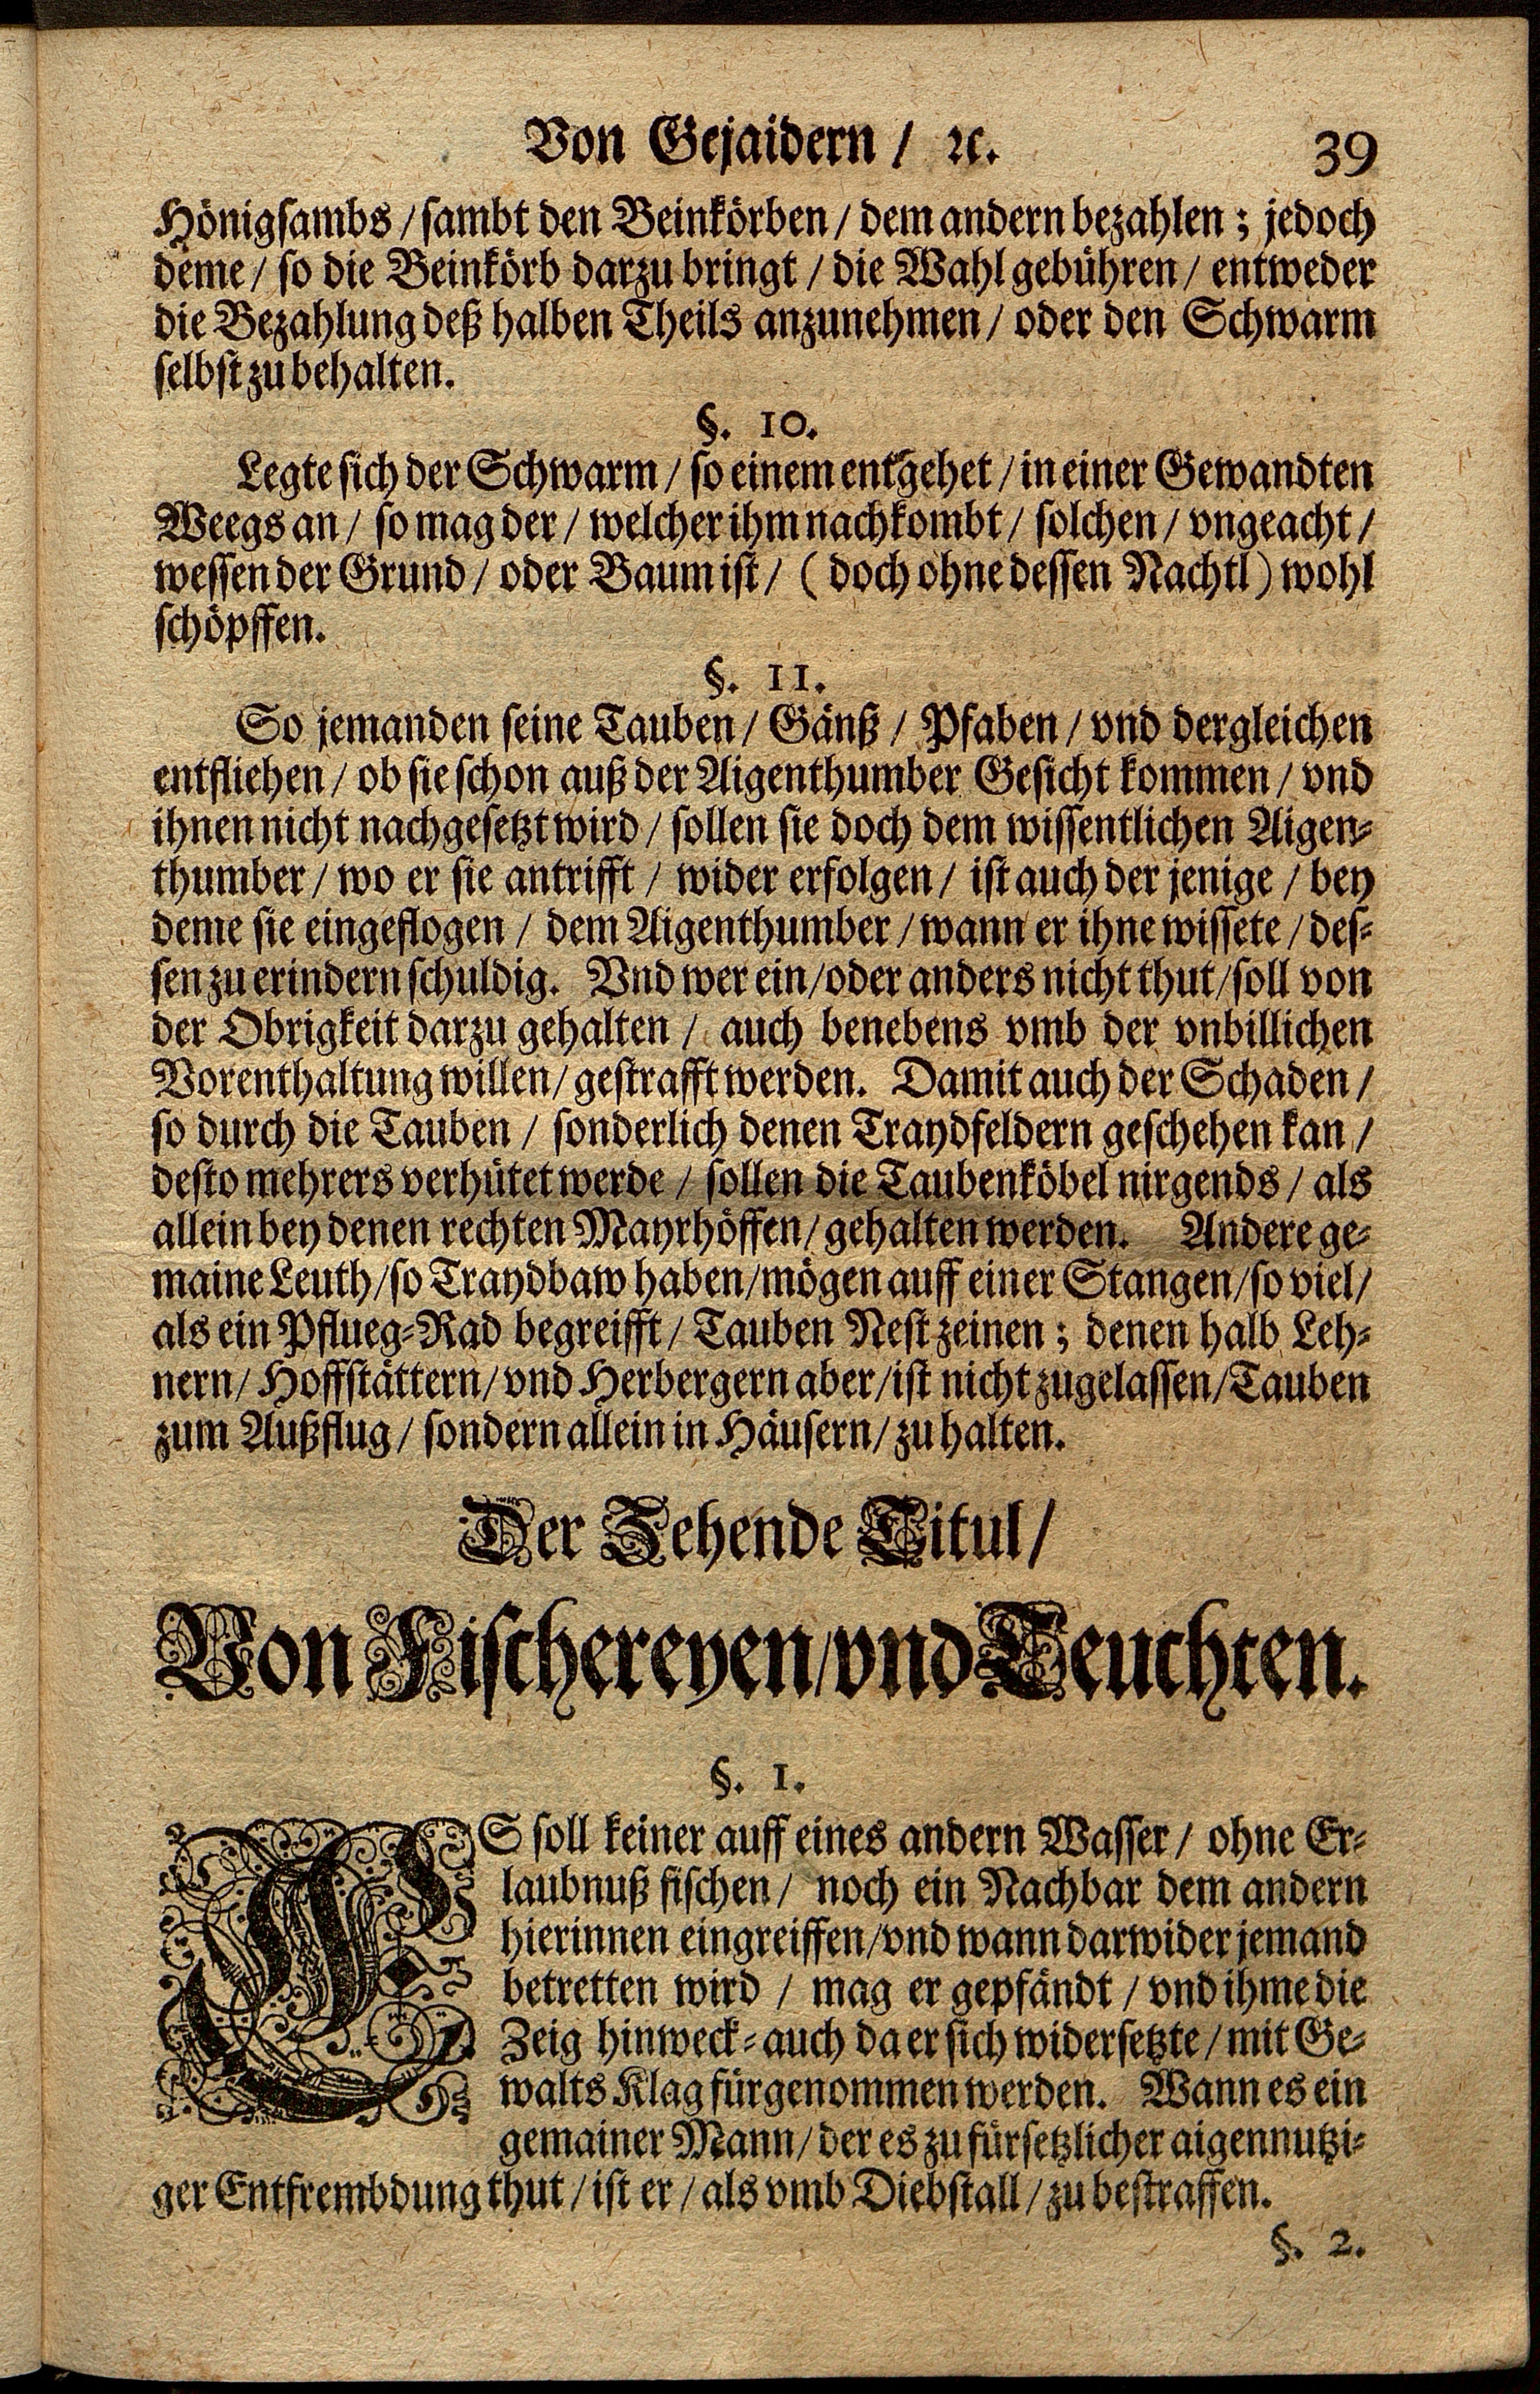 Von Gejaidern / ꝛc. 39
Hönigsambs / sambt den Beinkörben / dem andern bezahlen ; jedoch
deme / so die Beinkörb darzu bringt / die Wahl gebühren / entweder
die Bezahlung deß halben Theils anzunehmen / oder den Schwarm
selbst zu behalten.
§. 10.
Legte sich der Schwarm / so einem entgehet / in einer Gewandten
Weegs an / so mag der / welcher ihm nachkombt / solchen / vngeacht /
wessen der Grund / oder Baum ist / ( doch ohne dessen Nachtl ) wohl
schöpffen.
§. 11.
So jemanden seine Tauben / Gänß / Pfaben / vnd dergleichen
entfliehen / ob sie schon auß der Aigenthumber Gesicht kommen / vnd
ihnen nicht nachgesetzt wird / sollen sie doch dem wissentlichen Aigen-
thumber / wo er sie antrifft / wider erfolgen / ist auch der jenige / bey
deme sie eingeflogen / dem Aigenthumber / wann er ihne wissete / des-
sen zu erindern schuldig. Vnd wer ein / oder anders nicht thut / soll von
der Obrigkeit darzu gehalten / auch benebens vmb der vnbillichen
Vorenthaltung willen / gestrafft werden. Damit auch der Schaden /
so durch die Tauben / sonderlich denen Traydfeldern geschehen kan /
desto mehrers verhütet werde / sollen die Taubenköbel nirgends / als
allein bey denen rechten Mayrhöffen / gehalten werden. Andere ge-
maine Leuth / so Traydbaw haben / mögen auff einer Stangen / so viel /
als ein Pflueg-Rad begreifft / Tauben Nest zeinen ; denen halb Leh-
nern / Hoffstättern / vnd Herbergern aber / ist nicht zugelassen / Tauben
zum Außflug / sondern allein in Häusern / zu halten.
Der Zehende Titul /
Von Fischereyen / vnd Teuchten.
§. 1.
ES soll keiner auff eines andern Wasser / ohne Er-
laubnuß fischen / noch ein Nachbar dem andern
hierinnen eingreiffen / vnd wann darwider jemand
betretten wird / mag er gepfändt / vnd ihme die
Zeig hinweck- auch da er sich widersetzte / mit Ge-
walts Klag fürgenommen werden. Wann es ein
gemainer Mann / der es zu fürsetzlicher aigennutzi-
ger Entfrembdung thut / ist er / als vmb Diebstall / zu bestraffen.
§. 2.